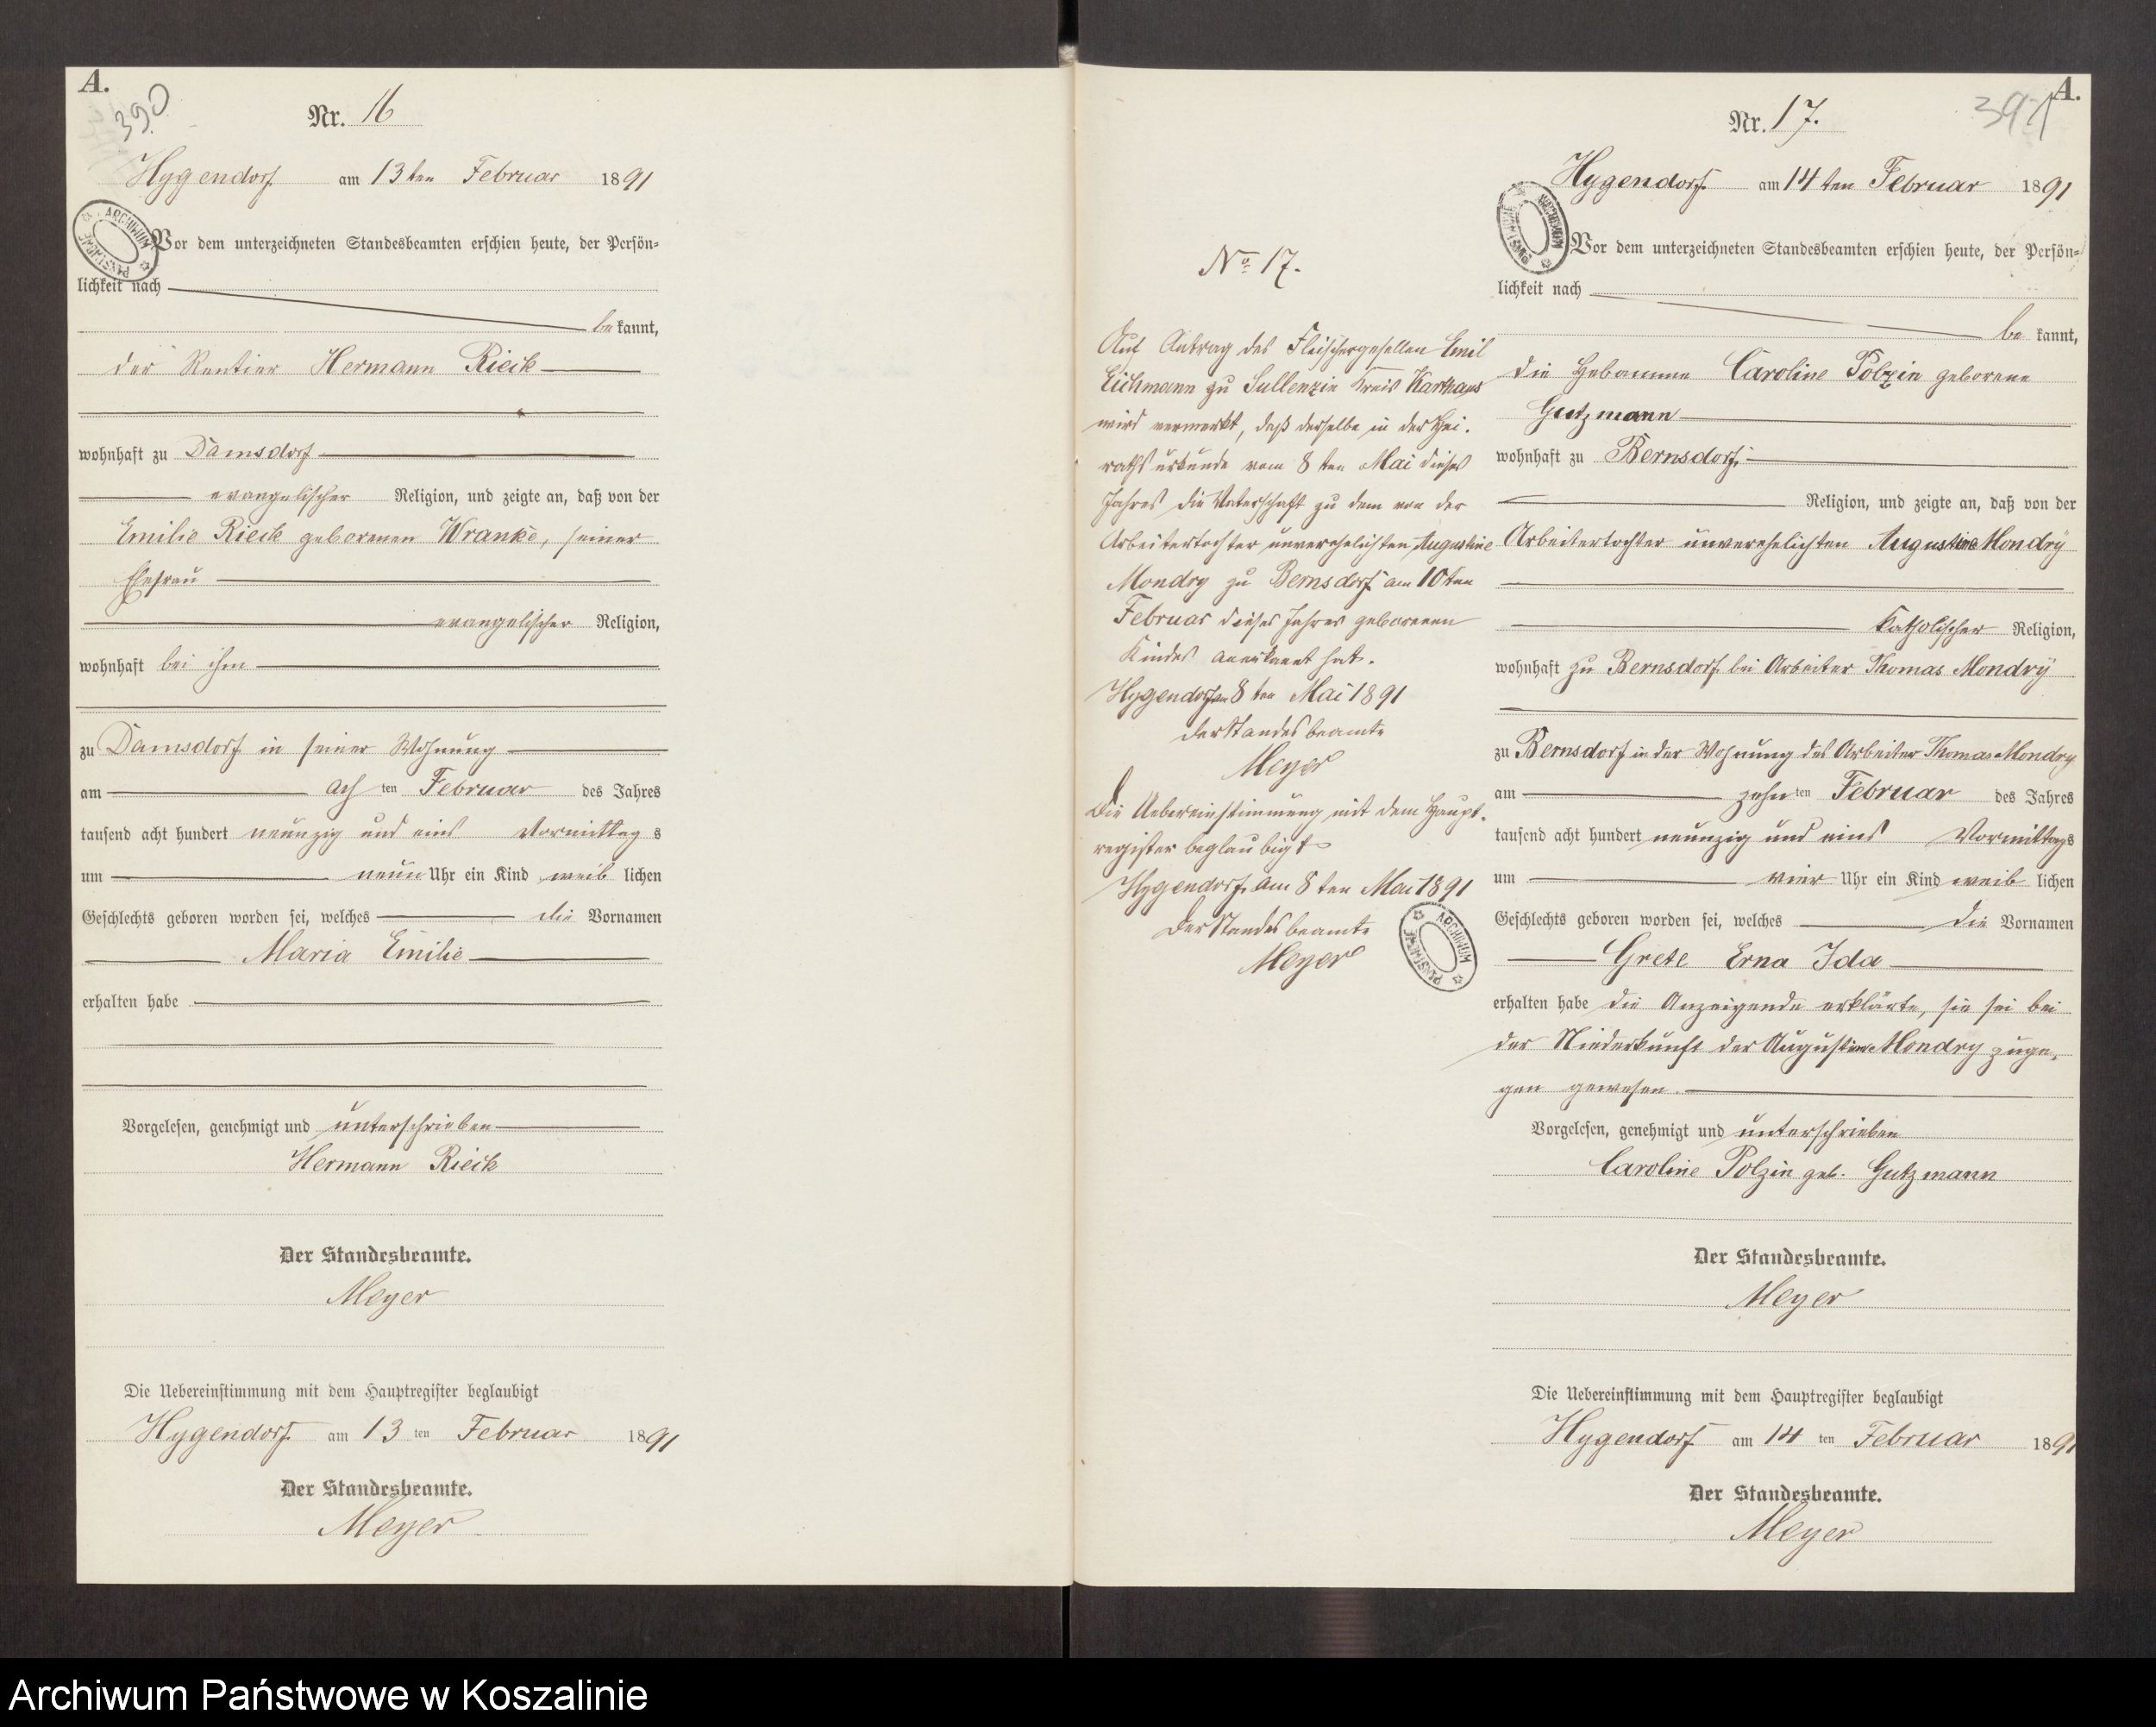 A.
390
Nr. 16
Hygendorf am 13ten Februar 1891
ARCHIWUM PAŃSTWOWE
Vor dem unterzeichneten Standesbeamten erschien heute, der Persön=
lichkeit nach
bekannt,
der Rentier Hermann Rieck
wohnhaft zu Damsdorf
evangelischer Religion, und zeigte an, daß von der
Emilie Rieck geborenen Wranke, seiner
Ehefrau
evangelischer Religion,
wohnhaft bei ihm
zu Damsdorf in seiner Wohnung
am ach ten Februar des Jahres
tausend acht hundert neunzig und eins Vormittags
um neun Uhr ein Kind weiblichen
Geschlechts geboren worden sei, welches die Vornamen
Maria Emilie
erhalten habe
Vorgelesen, genehmigt und unterschrieben
Hermann Rieck
Der Standesbeamte.
Meyer
Die Uebereinstimmung mit dem Hauptregister beglaubigt
Hygendorf am 13 ten Februar 1891
Der Standesbeamte.
Meyer
No 17.
Auf Antrag des Fleischergesellen Emil
Eichmann zu Sullenzin Kreis Karthaus
wird vermerkt, daß derselbe in der Hei.
rathsurkunde vom 8ten Mai dieses
Jahres die Vaterschaft zu dem von der
Arbeitertochter unverehelichten Augustine
Mondry zu Bernsdorf am 10ten
Februar dieses Jahres geborenen
Kindes anerkannt hat.
Hygendorf am 8ten Mai 1891
Der Standesbeamte
Meyer
Die Uebereinstimmung mit dem Haupt.
register beglaubigt
Hygendorf am 8ten Mai 1891
Der Standesbeamte
Meyer
ARCHIWUM PAŃSTWOWE
A.
391
Nr. 17.
Hygendorf am 14ten Februar 1891
ARCHIWUM PAŃSTWOWE
Vor dem unterzeichneten Standesbeamten erschien heute, der Persön=
lichkeit nach
be kannt,
die Hebamme Caroline Polzin geborene
Gutzmann
wohnhaft zu Bernsdorf
Religion, und zeigte an, daß von der
Arbeitertochter unverehelichten Augustine Mondry
katholischer Religion,
wohnhaft zu Bernsdorf bei Arbeiter Thomas Mondry
zu Bernsdorf in der Wohnung des Arbeiter Thomas Mondry
am zehn ten Februar des Jahres
tausend acht hundert neunzig und eins Vormittags
um vier Uhr ein Kind weiblichen
Geschlechts geboren worden sei, welches die Vornamen
Grete Erna Ida
erhalten habe die Anzeigende erklärte, sie sei bei
der Niederkunft der Augustine Mondry zuge,
gen gewesen.
Vorgelesen, genehmigt und unterschrieben
Caroline Polzin geb. Gutzmann
Der Standesbeamte.
Meyer
Die Uebereinstimmung mit dem Hauptregister beglaubigt
Hygendorf am 14 ten Februar 1891
Der Standesbeamte.
Meyer
Archiwum Państwowe w Koszalinie